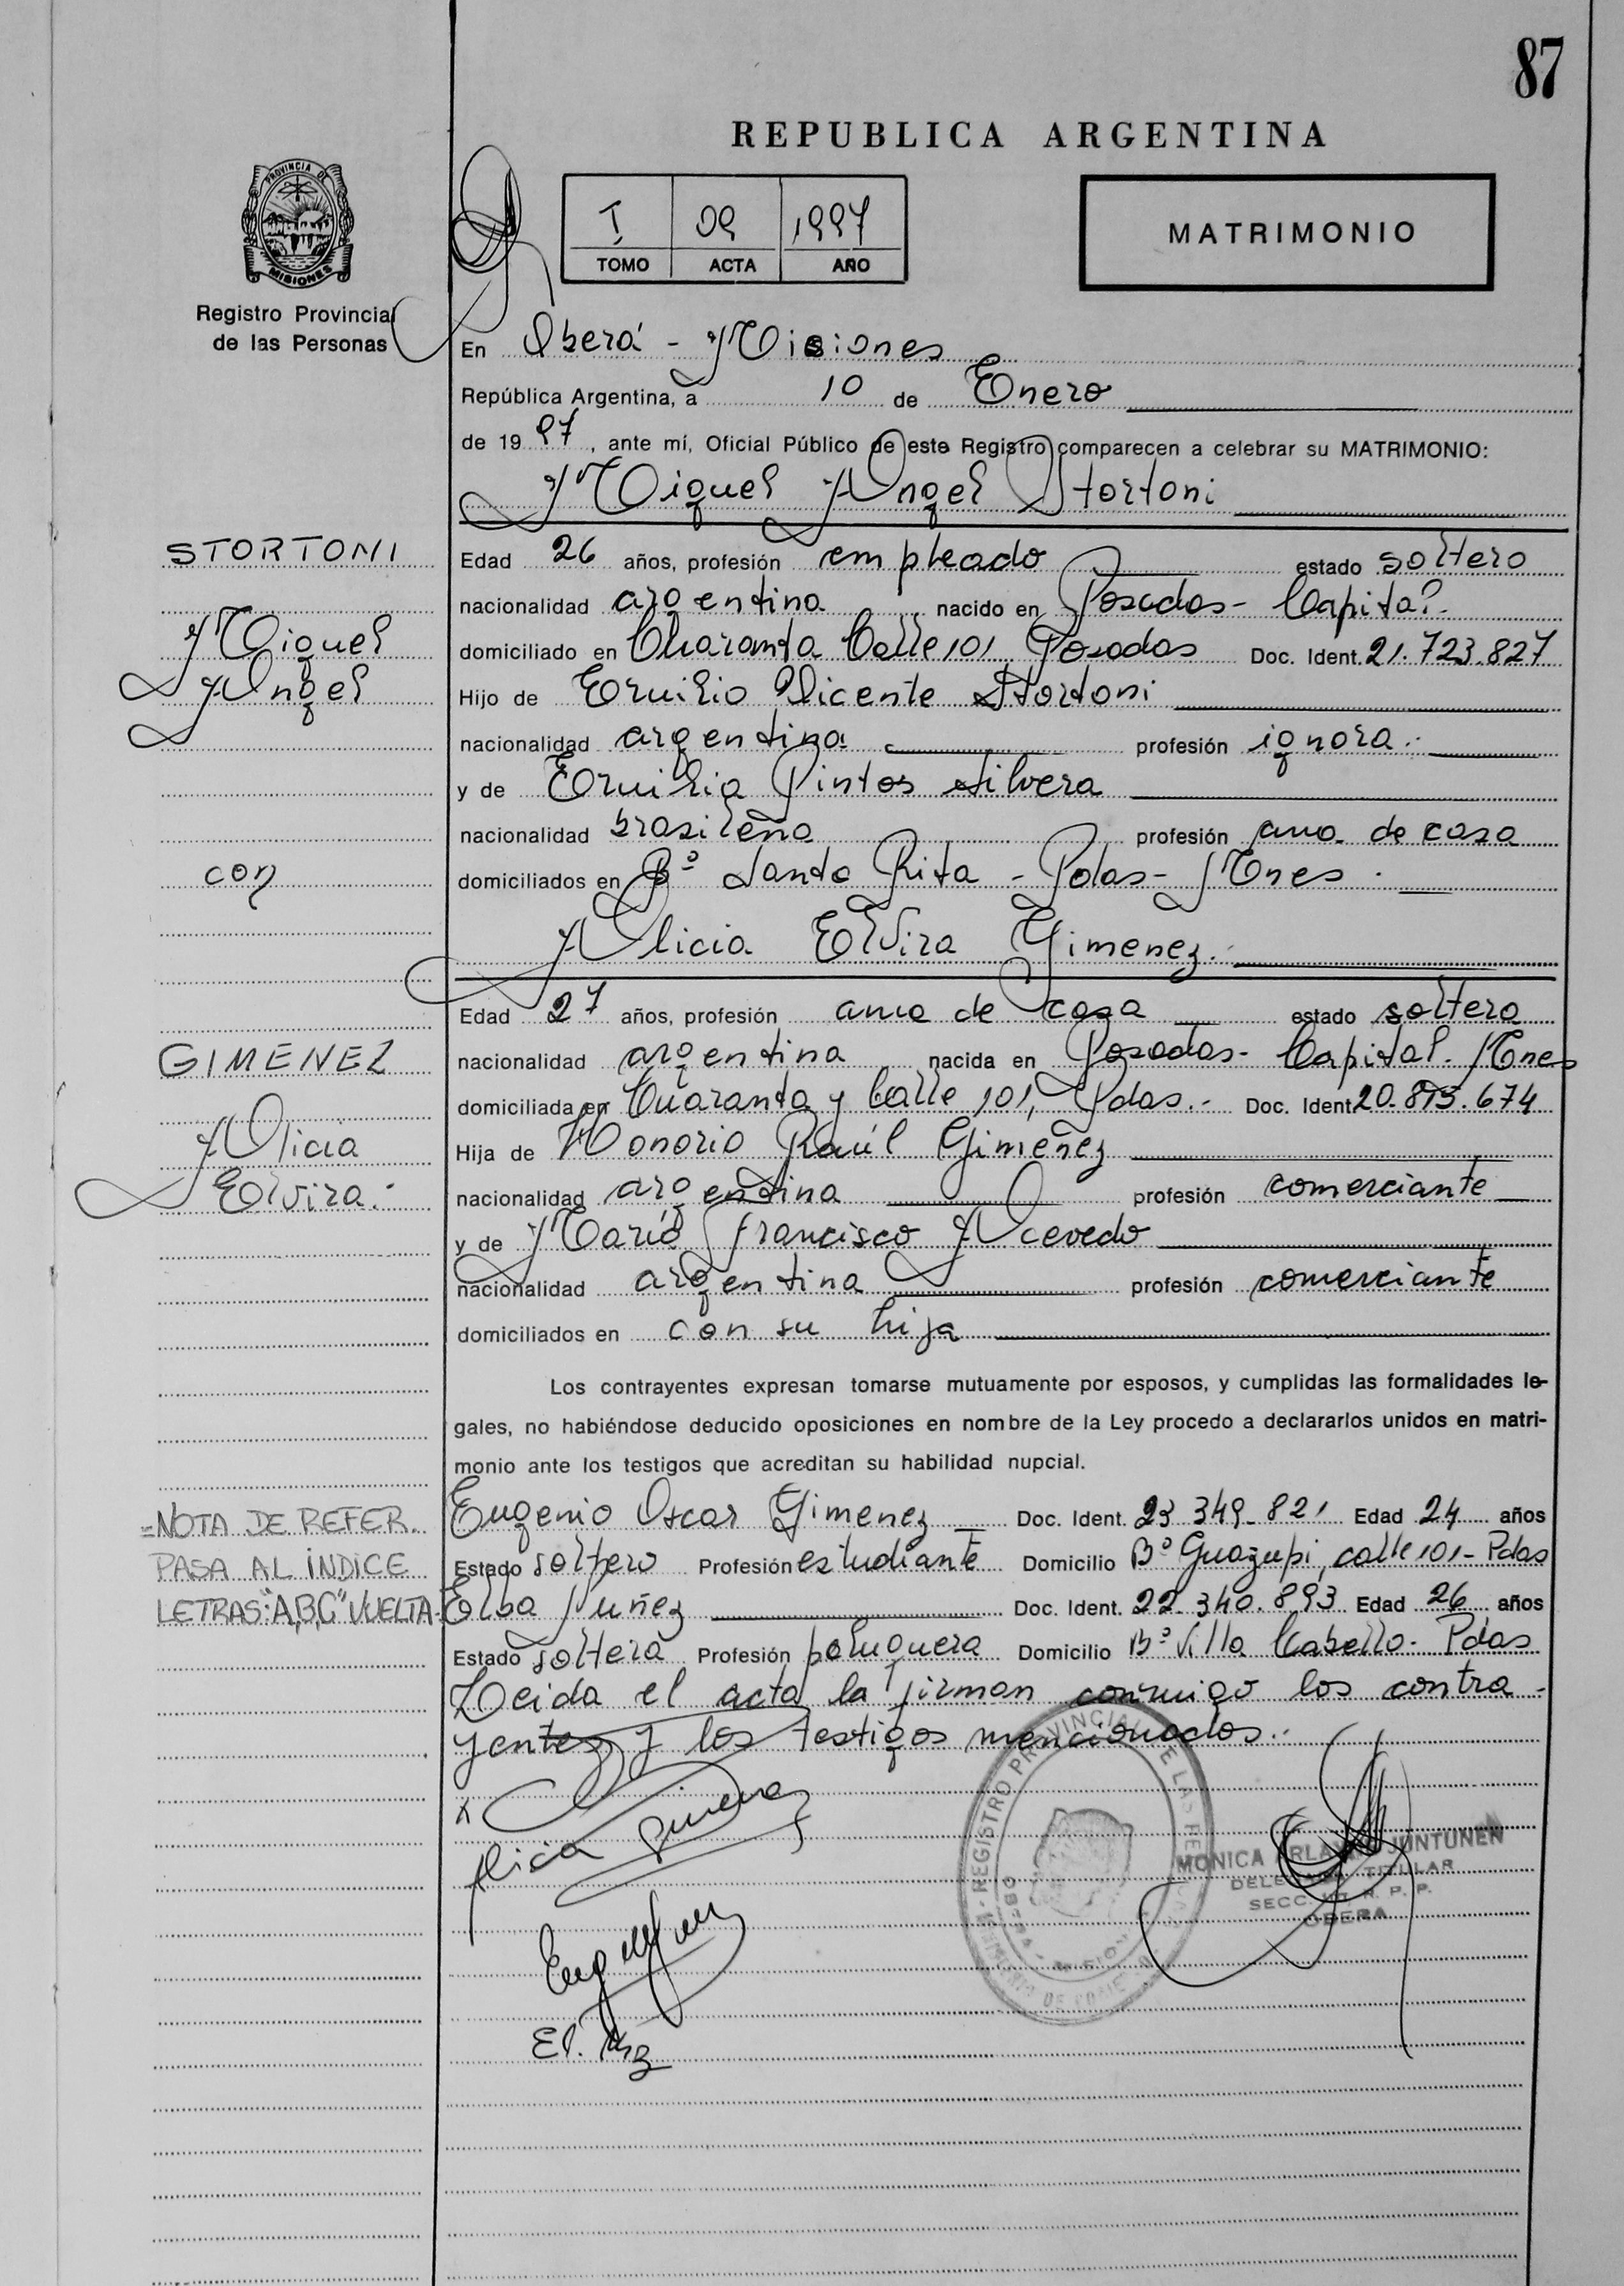 87
REPUBLICA ARGENTINA
PROVINCIA DE
MISIONES
Registro Provincial
de las Personas
I 09 1997
TOMO ACTA AÑO
MATRIMONIO
En Oberá - Misiones
República Argentina, a 10 de Enero
de 19 97, ante mí, Oficial Público de este Registro comparecen a celebrar su MATRIMONIO:
Miguel Angel Stortoni
STORTONI
Miguel
Angel
con
GIMENEZ
Alicia
Elvira.-
Edad 26 años, profesión empleado estado soltero
nacionalidad argentina nacido en Posadas - Capital.
domiciliado en Chacra Calle 101 Posadas Doc. Ident. 21.723.827
Hijo de Emilio Vicente Stortoni
nacionalidad argentina profesión ignora.-
y de Emilia Pintos Silvera
nacionalidad brasileña profesión ama de casa
domiciliados en Bº Santa Rita - Pdas - Mnes.
Alicia Elvira Gimenez.
Edad 27 años, profesión ama de casa estado soltera
nacionalidad argentina nacida en Posadas - Capital. Mnes
domiciliada en y Calle 101, Pdas.- Doc. Ident 20.873.674
Hija de Honorio Raúl Gimeñez
nacionalidad argentina profesión comerciante
y de María Francisco Acevedo
nacionalidad argentina profesión comerciante
domiciliados en con su hija
Los contrayentes expresan tomarse mutuamente por esposos, y cumplidas las formalidades le-
gales, no habiéndose deducido oposiciones en nombre de la Ley procedo a declararlos unidos en matri-
monio ante los testigos que acreditan su habilidad nupcial.
=NOTA DE REFER.
PASA AL ÍNDICE
LETRAS: "A,B,C" VUELTA.
Eugenio Oscar Gimenez Doc. Ident. 23 349.821 Edad 24 años
Estado soltero Profesión estudiante Domicilio Bº Guazupi, calle 101 - Pdas
Elba Nuñez Doc. Ident. 22.340.893 Edad 26 años
Estado soltera Profesión peluquera Domicilio Bº Villa Cabello - Pdas
Leida el acta la firman conmigo los contra-
yentes y los testigos mencionados.-
x
Alicia Gimenez
El. Nz
REGISTRO PROVINCIAL DE LAS PERSONAS
MONICA JUNTUNEN
DELEGADA TITULAR
SECC. R. P. P.
OBERA